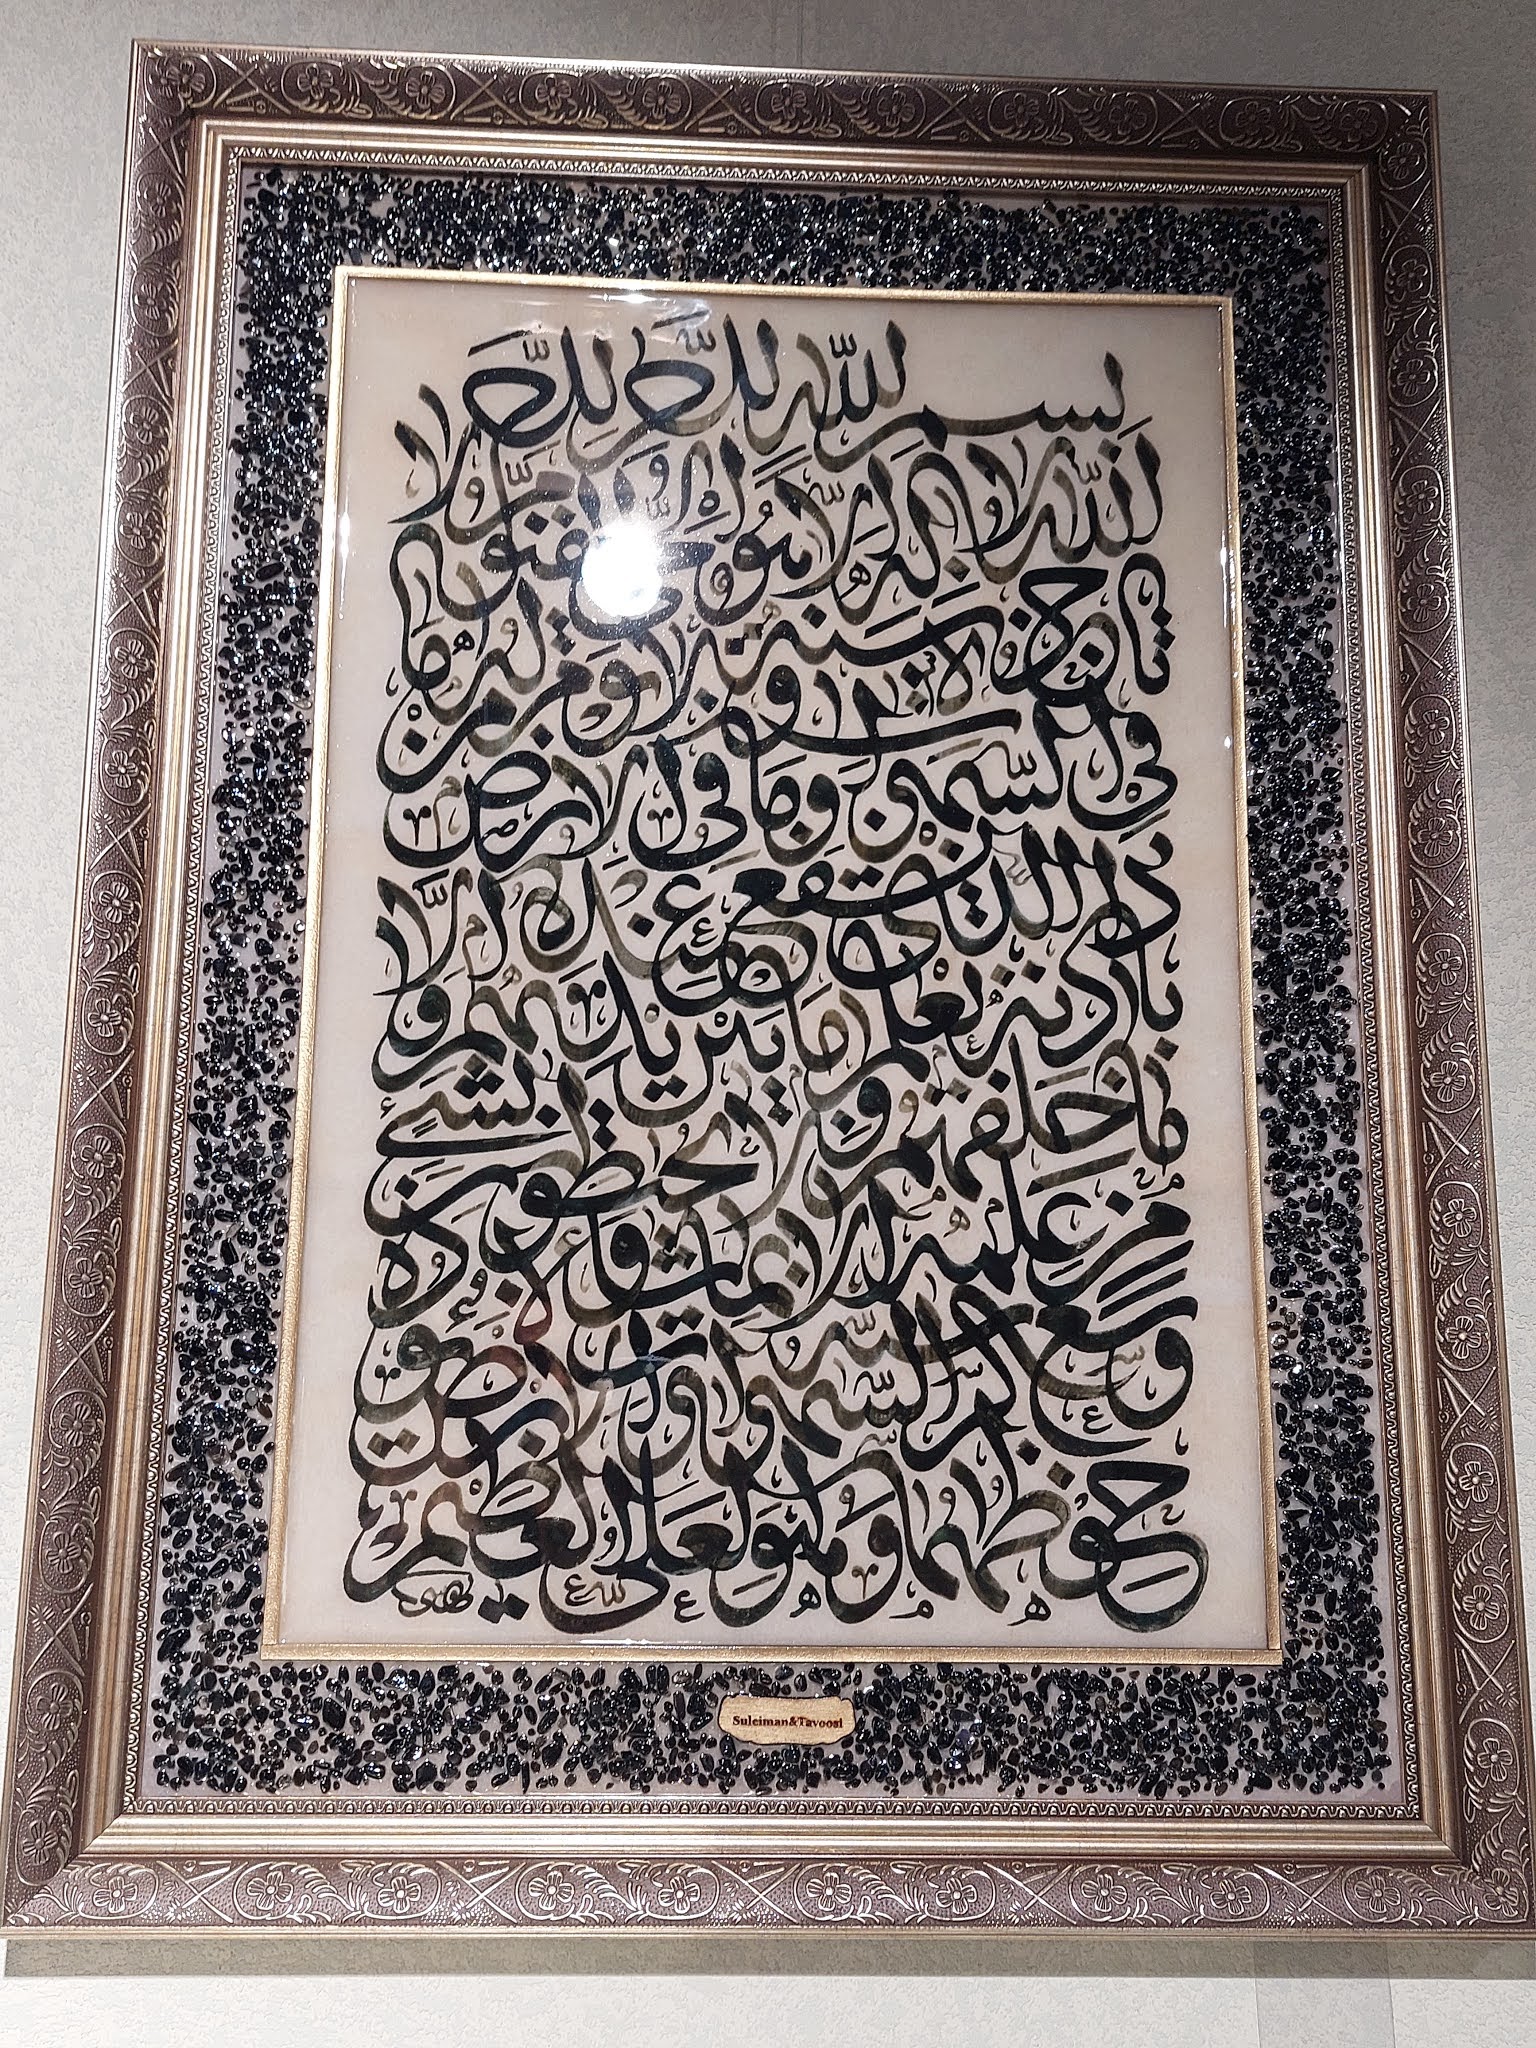 بسم الله الرحمن الرحيم
الله لا إله إلا هو الحي القيوم لا
تأخذه سنة ولا نوم له ما
في السموات وما في الأرض من
ذا الذي يشفع عنده إلا
بإذنه يعلم ما بين أيديهم و
ما خلفهم ولا يحيطون بشيء
من علمه إلا بما شاء
وسع كرسيه السموات والأرض ولا يؤده
حفظهما وهو العلي العظيم
Suleiman&Tavoosi